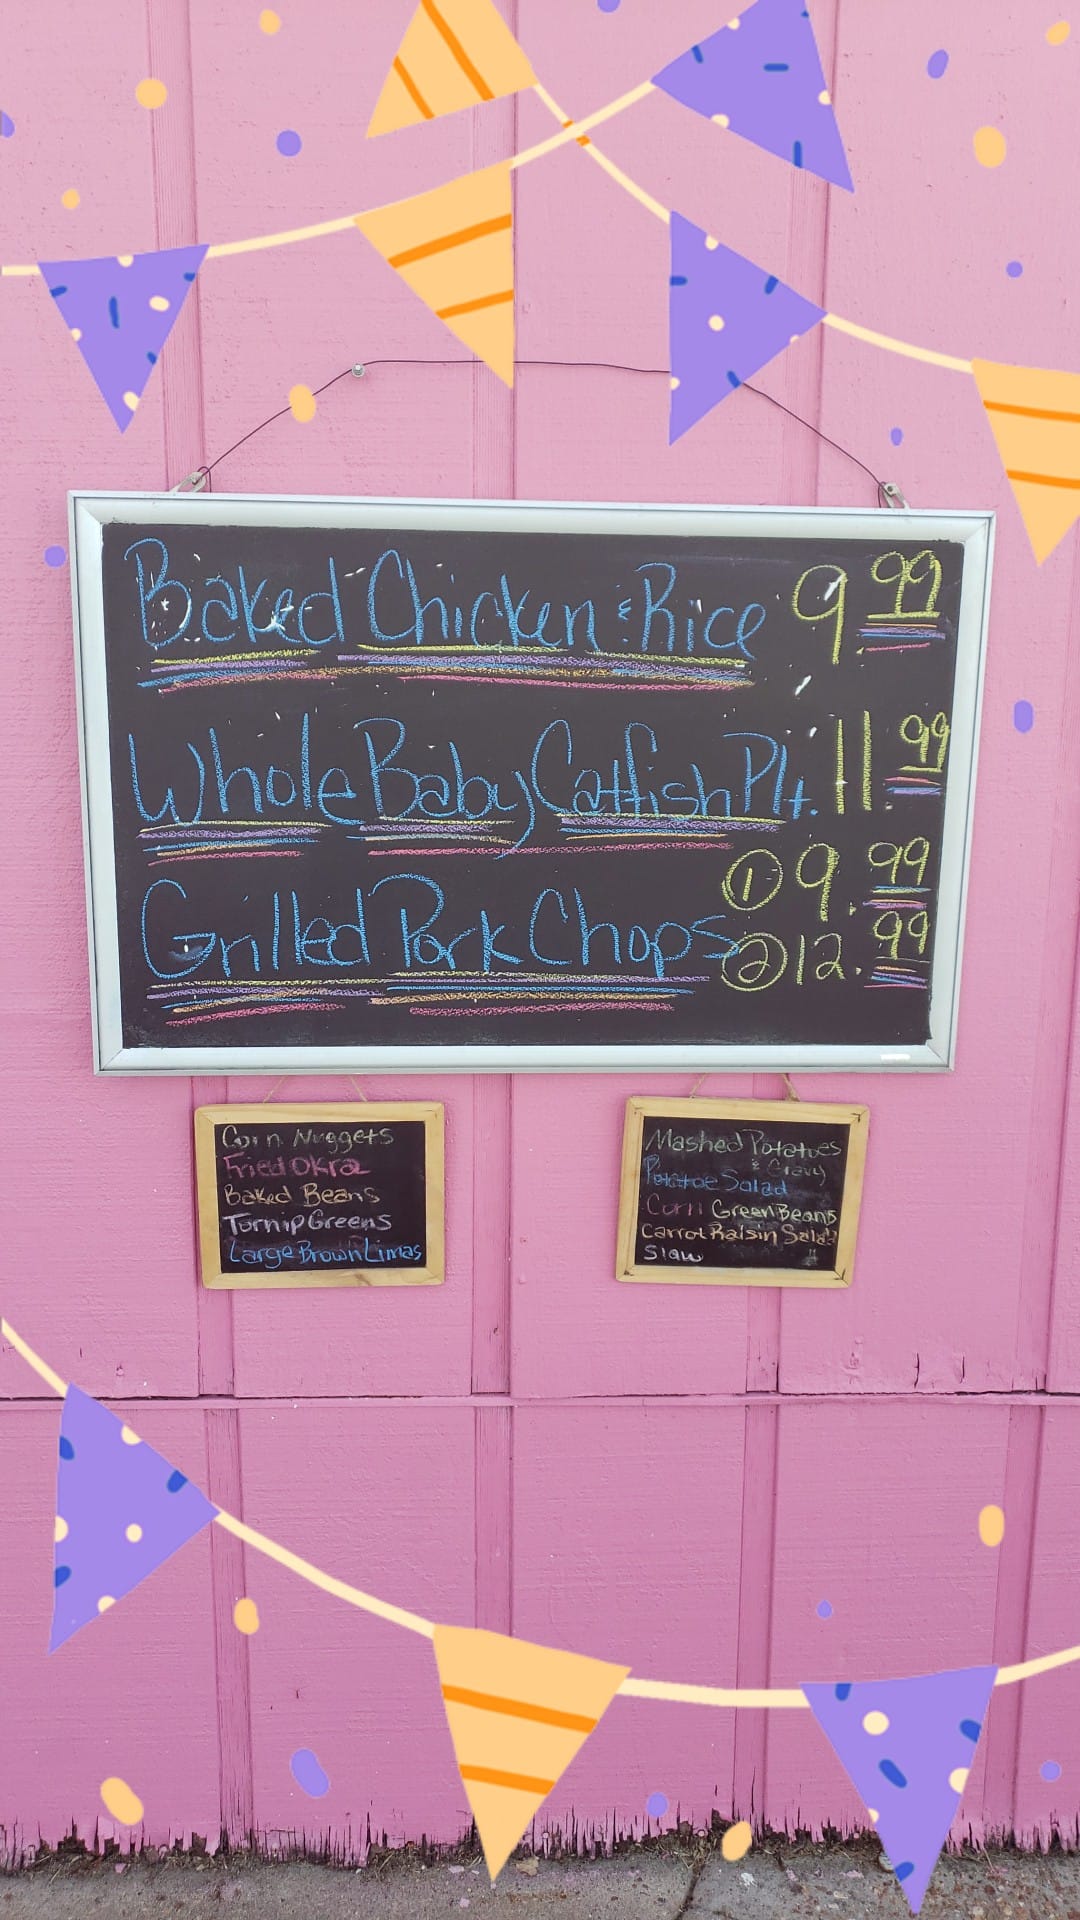 Baked Chicken & Rice 9.99
Whole Baby Catfish Plt. 11.99
Grilled Pork Chops ① 9.99
② 12.99
Corn Nuggets
Fried Okra
Baked Beans
Turnip Greens
Large Brown Limas
Mashed Potatoes
& Gravy
Potatoe Salad
Corn Green Beans
Carrot Raisin Salad
Slaw